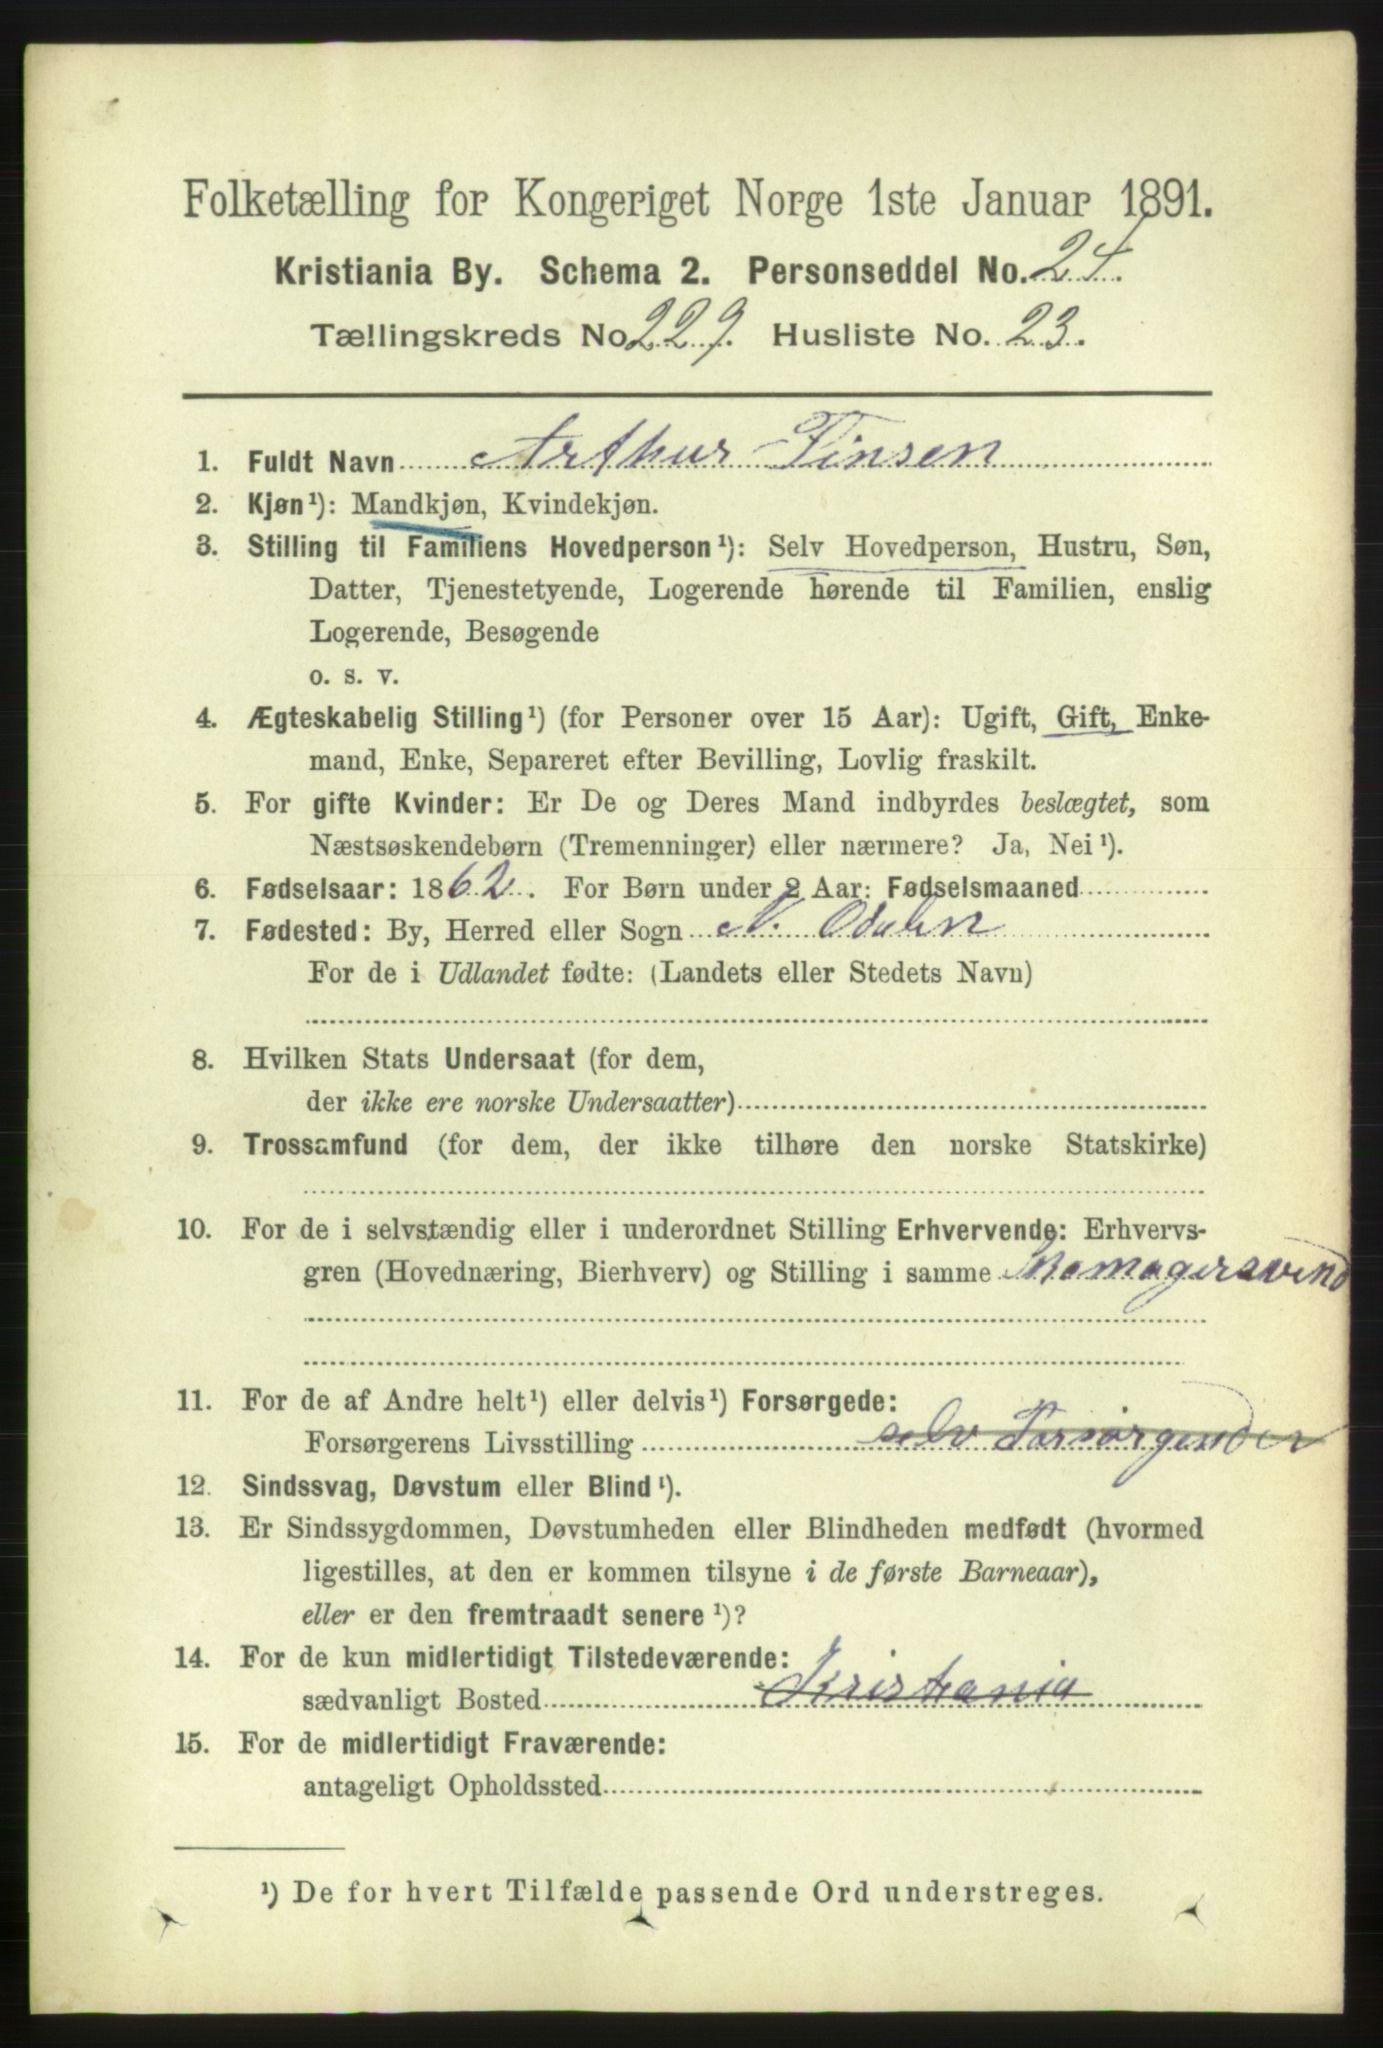 Folketælling for Kongeriget Norge 1ste Januar 1891.
Kristiania By. Schema 2. Personseddel No. 24.
Tællingskreds No 229. Husliste No. 23.
1. Fuldt Navn Arthur Finsen
2. Kjøn¹): Mandkjøn, Kvindekjøn.
3. Stilling til Familiens Hovedperson¹): Selv Hovedperson, Hustru, Søn,
Datter, Tjenestetyende, Logerende hørende til Familien, enslig
Logerende, Besøgende
o. s. v.
4. Ægteskabelig Stilling¹) (for Personer over 15 Aar): Ugift, Gift, Enke-
mand, Enke, Separeret efter Bevilling, Lovlig fraskilt.
5. For gifte Kvinder: Er De og Deres Mand indbyrdes beslægtet, som
Næstsøskendebørn (Tremenninger) eller nærmere? Ja, Nei¹).
6. Fødselsaar: 1862. For Børn under 2 Aar: Fødselsmaaned
7. Fødested: By, Herred eller Sogn N. Odalen
For de i Udlandet fødte: (Landets eller Stedets Navn)
8. Hvilken Stats Undersaat (for dem,
der ikke ere norske Undersaatter)
9. Trossamfund (for dem, der ikke tilhøre den norske Statskirke)
10. For de i selvstændig eller i underordnet Stilling Erhvervende: Erhvervs-
gren (Hovednæring, Bierhverv) og Stilling i samme Skomagersvend
11. For de af Andre helt¹) eller delvis¹) Forsørgede:
Forsørgerens Livsstilling selv Forsørgender
12. Sindssvag, Døvstum eller Blind¹).
13. Er Sindssygdommen, Døvstumheden eller Blindheden medfødt (hvormed
ligestilles, at den er kommen tilsyne i de første Barneaar),
eller er den fremtraadt senere¹)?
14. For de kun midlertidigt Tilstedeværende:
sædvanligt Bosted Kristiania
15. For de midlertidigt Fraværende:
antageligt Opholdssted
¹) De for hvert Tilfælde passende Ord understreges.